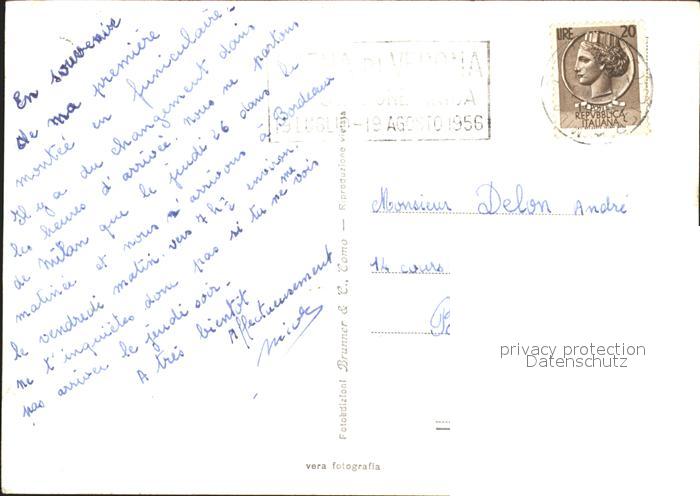 En souvenir
de ma première
montée en funiculaire -
Il y a du changement dans
les heures d'arrivée, nous ne partons
de Milan que le jeudi 26 dans la
matinée et nous n'arrivons à Bordeaux
le vendredi matin vers 7h½ environ.
ne t'inquiètes donc pas si tu ne me vois
pas arriver le jeudi soir -
A très bientôt
Affectueusement
Nicole
VERONA
19 AGOSTO 1956
LIRE 20
REPVBBLICA
ITALIANA
Monsieur Delon André
14 cours
Fotoedizioni Brunner & C., Como — Riproduzione vietata
vera fotografia
privacy protection
Datenschutz